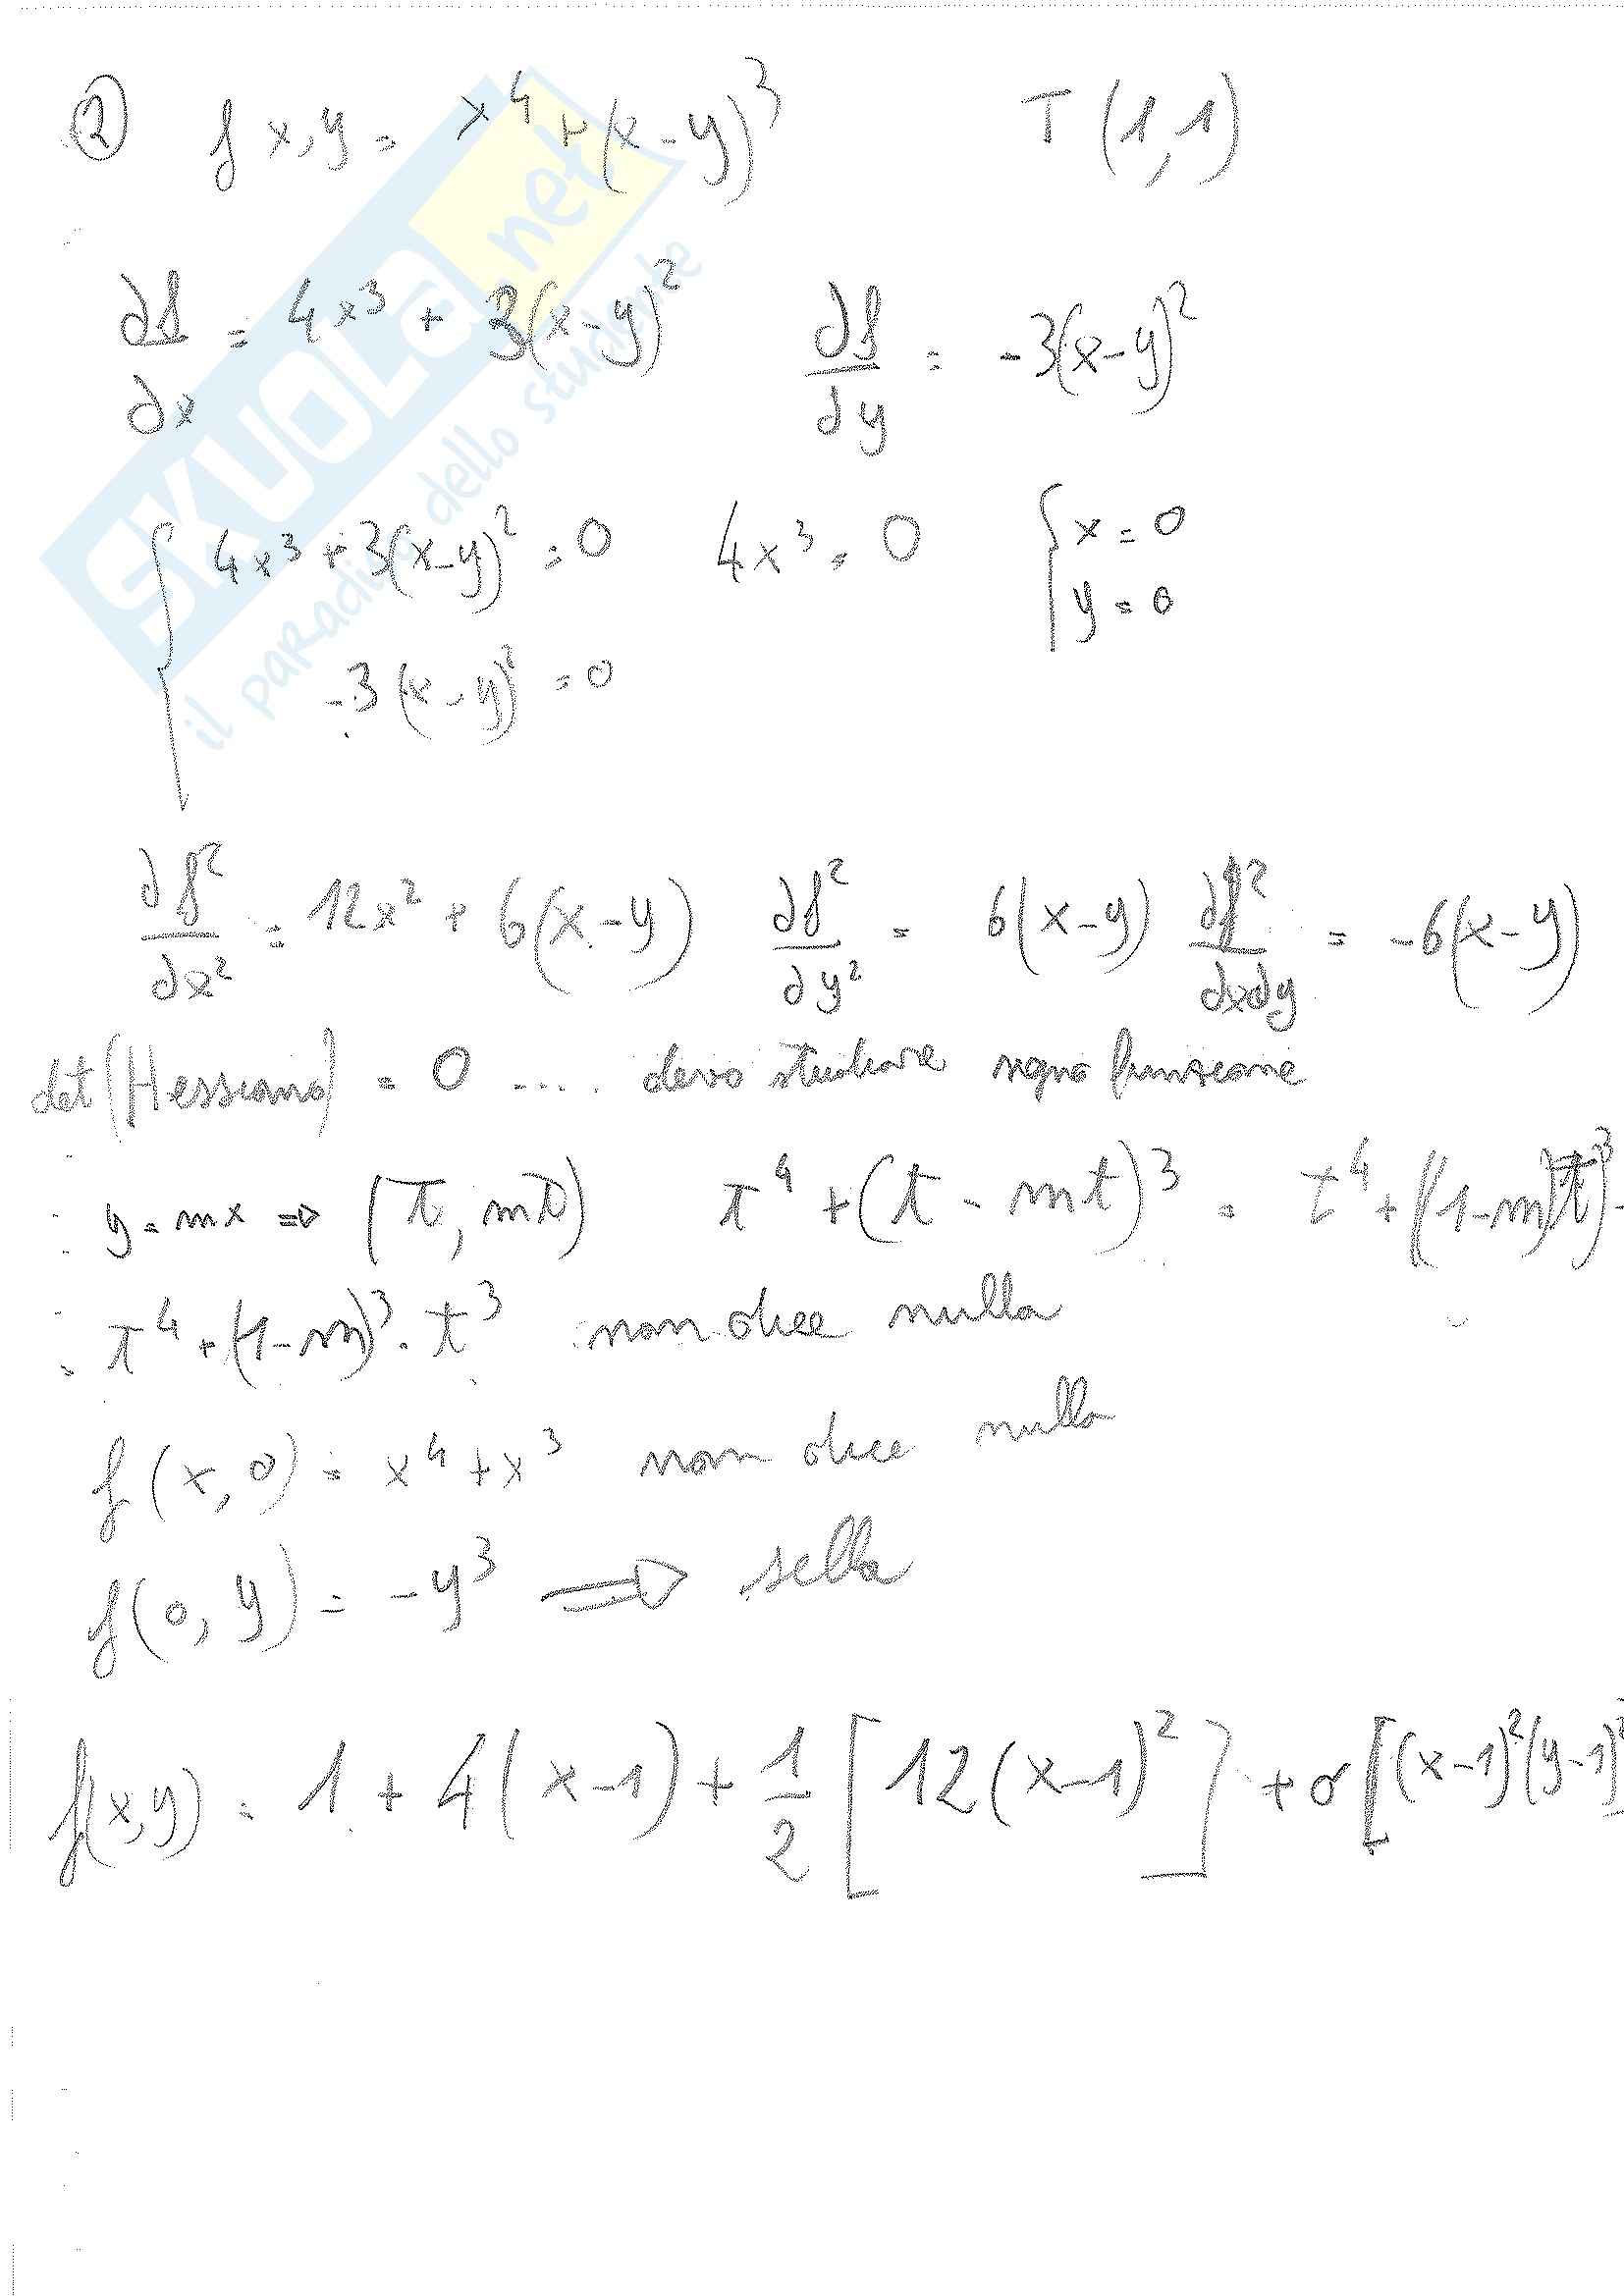 ② f x,y = x⁴ + (x-y)³ T(1,1)
∂f/∂x = 4x³ + 3(x-y)² ∂f/∂y = -3(x-y)²
{ 4x³ + 3(x-y)² = 0 4x³ = 0 { x = 0
-3(x-y)² = 0 y = 0
∂f²/∂x² = 12x² + 6(x-y) ∂f²/∂y² = 6(x-y) ∂f²/∂x∂y = -6(x-y)
det(Hessiano) = 0 .... devo studiare segno funzione
y = mx ⇒ (t, mt) t⁴ + (t - mt)³ = t⁴ + ((1-m)t)³ =
= t⁴ + (1-m)³ · t³ non dice nulla
f(x,0) = x⁴ + x³ non dice nulla
f(0,y) = -y³ ⟹ sella
f(x,y) = 1 + 4(x-1) + 1/2 [12(x-1)²] + o[(x-1)²(y-1)²
SKUOLA.net
il paradiso dello studente